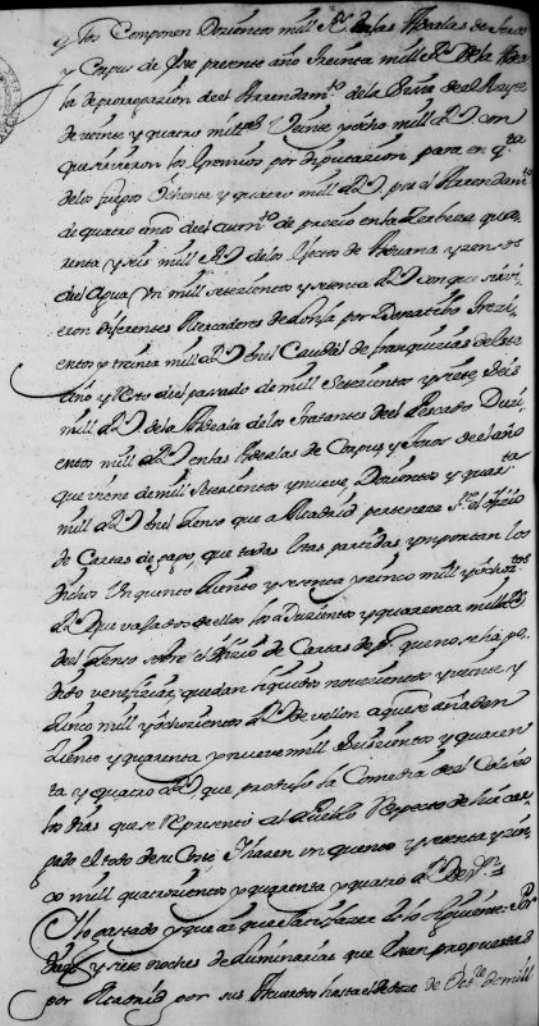 y los Componen Dozientos mill R.s en las Alcalas de
y Corpus de este presente año treinta mill R.s de la
la de prorrogazion deel Arrendam.to de la
de veinte y quatro mill Veinte y ocho mill con
que sirvieron los Gremios por diputazion para en q.ta
de los fuegos Ochenta y quatro mill por el Arrendam.to
de quatro años deel cum.to de prezio en la Zerbeza quar
renta y seis mill de los efectos de Aduana y zensos
deel Agua Un mill setezientos y setenta con que sirvi
eron diferentes Mercaderes de Lonja por Donatibo trezi
entos y treinta mill en el Caudal de franquizias de este
Año y resto deel passado de mill setezientos y siete, Seis
mill de la de los tratantes deel Pescado Duzi
entos mill en las de Corpus y deel año
que viene de mill setezientos y nueve, Dozientos y quar.ta
mill en el Zenso que a Madrid perteneze s.re el ofizio
de Cartas de pago, que todas estas partidas ymportan los
dichos Un quento Ziento y sesenta y zinco mill y ochoz.tos
que vajados de ellos los Duzientos y quarenta mill
deel Zenso sobre el ofizio de Cartas de p.o que no se ha po
dido venefiziar, quedan liquidos novezientos y veinte y
zinco mill y ochozientos de vellon a que se añaden
Ziento y quarenta y nueve mill Seiszientos y quaren
ta y quatro que produjo la Comedia deel Coliseo
los dias que se represento al Pueblo respecto de
pado el todo de su Coste, y hazen un quento y setenta y zin
co mill quatrozientos y quarenta y quatro de v.n
Y lo gastado y que ai que satisfazer es lo siguiente: Por
y siete noches de luminarias que estan propuestas
por Madrid por sus Acuerdos hasta el de doze de de mill